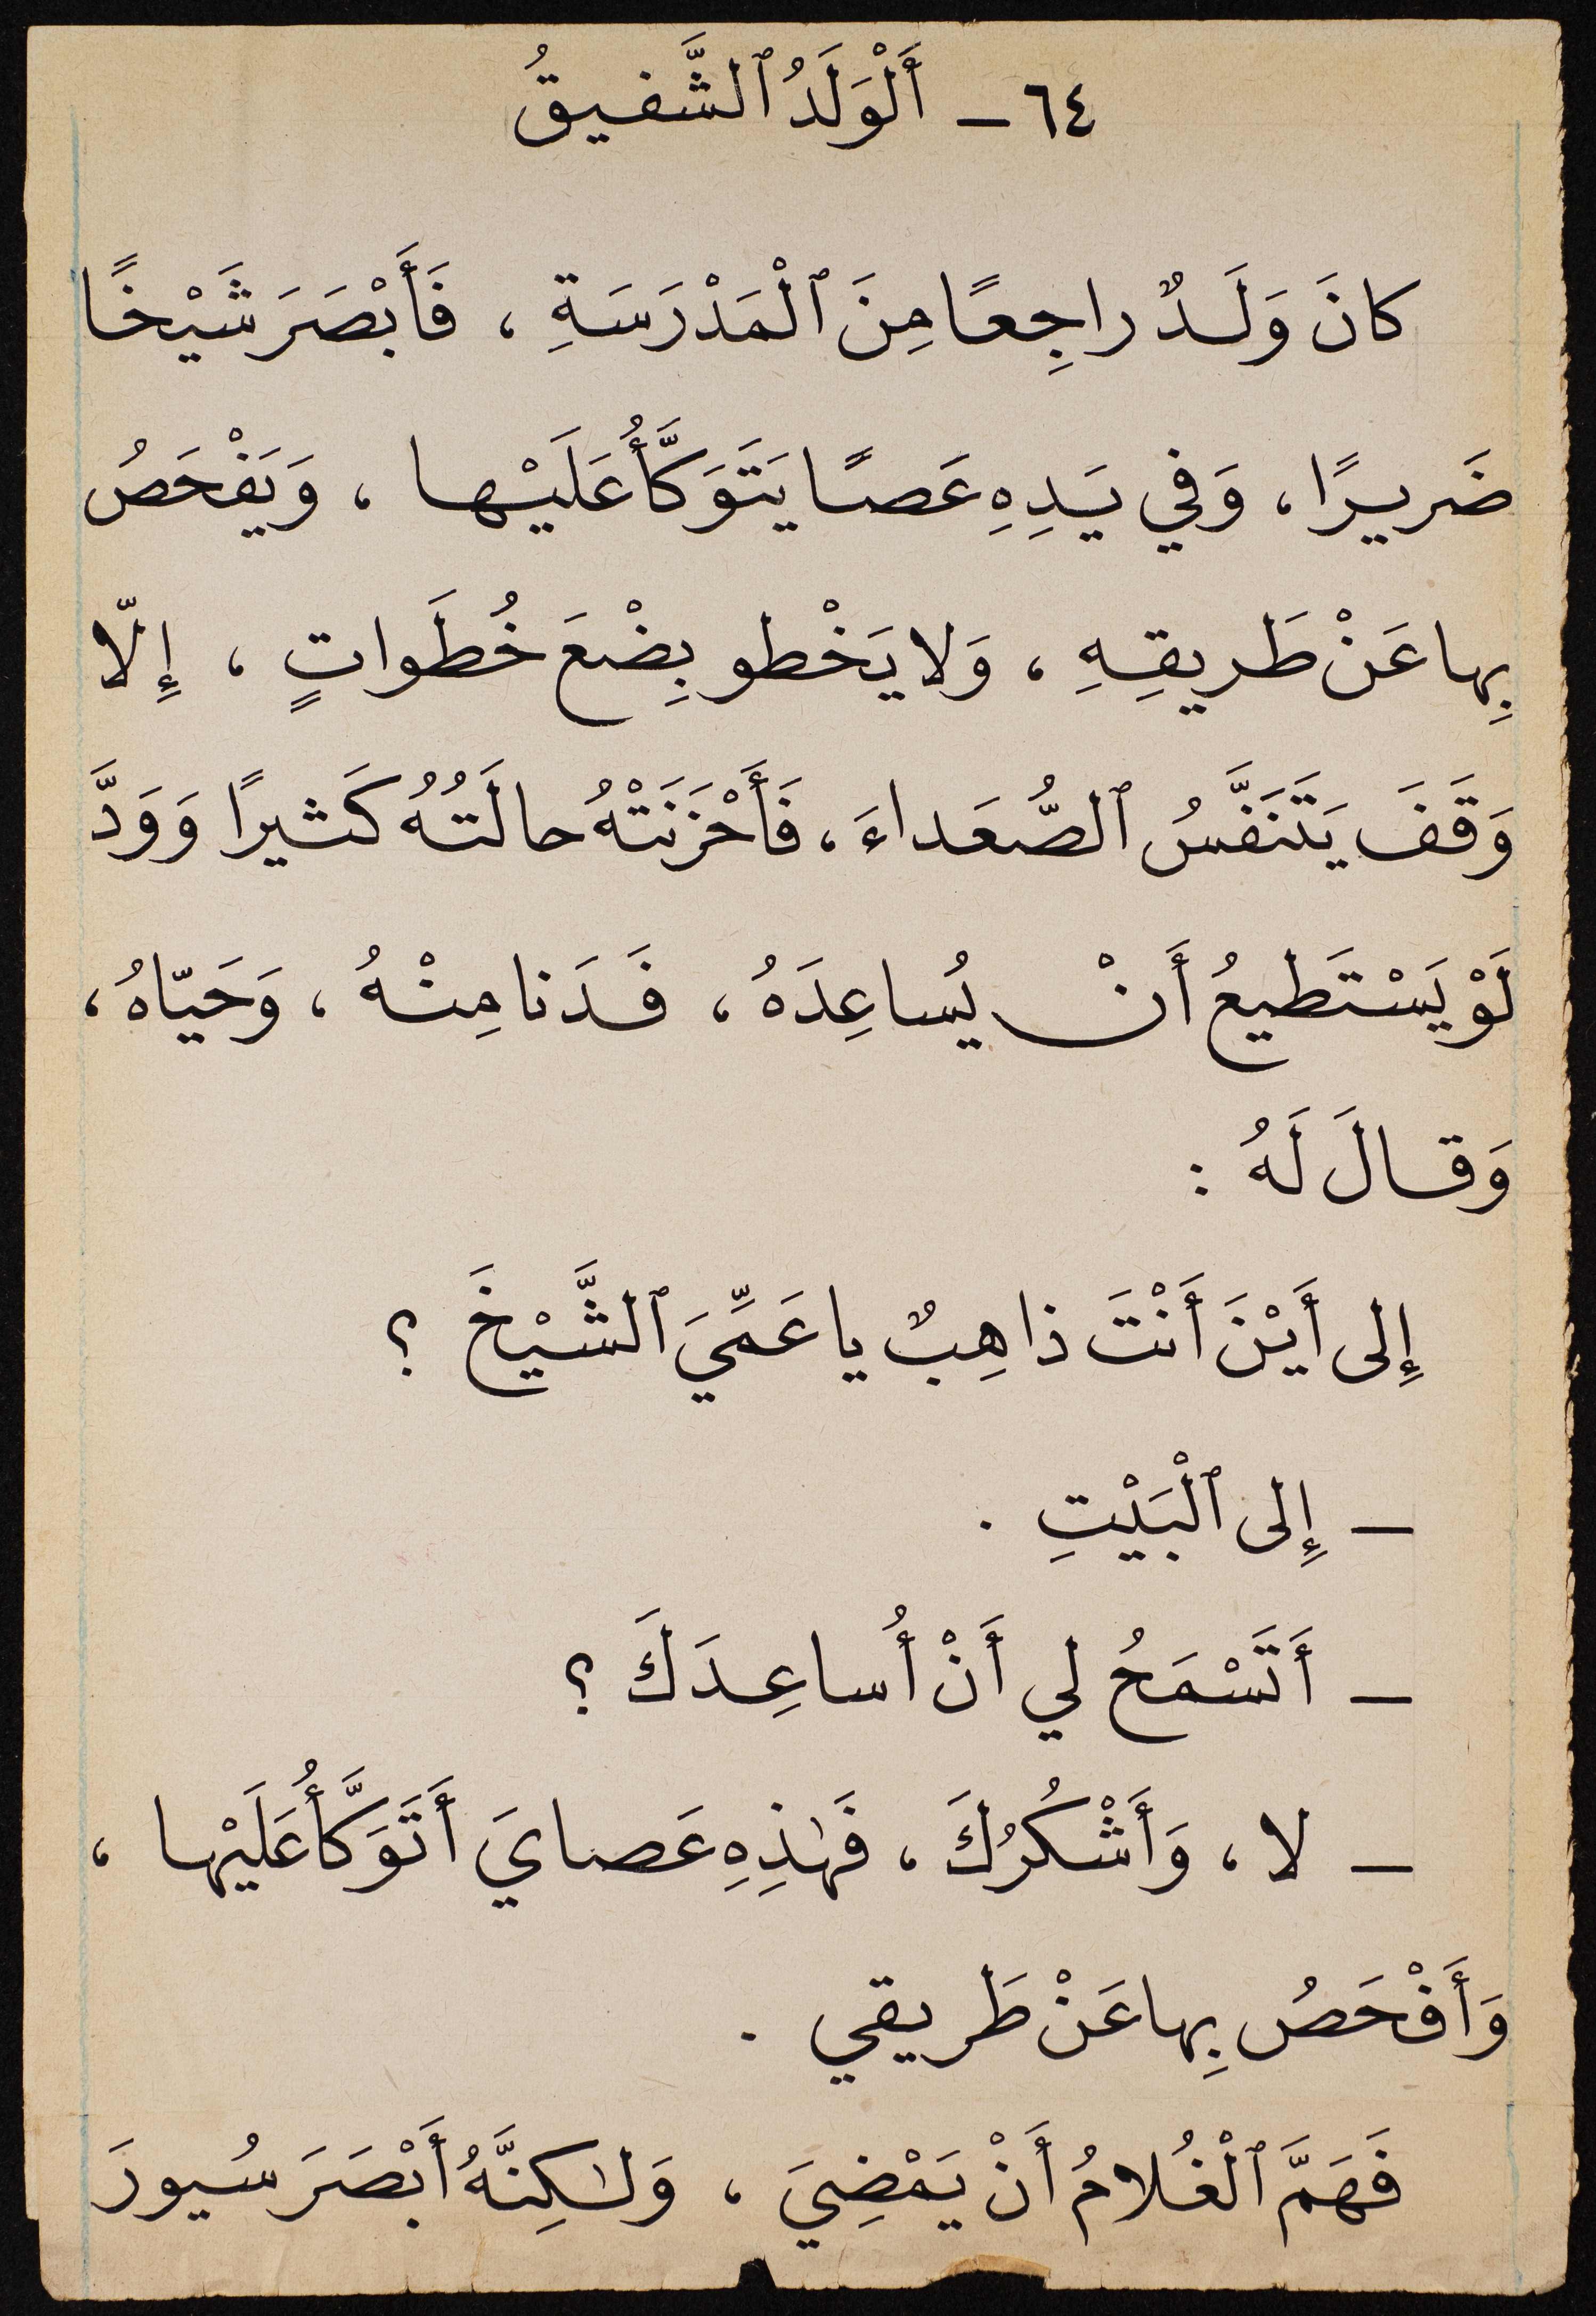 ٦٤ - أَلْوَلَدُ ٱلشَّفيقُ
كانَ وَلَدٌ راجِعًا مِنَ ٱلْمَدْرَسَةِ ، فَأَبْصَرَ شَيْخًا
ضَريرًا ، وَفي يَدِهِ عَصًا يَتَوَكَّأُ عَلَيْها ، وَيَفْحَصُ
بِها عَنْ طَريقِهِ ، وَلا يَخْطو بِضْعَ خُطَواتٍ ، إِلّا
وَقَفَ يَتَنَفَّسُ ٱلصُّعَداءَ ، فَأَحْزَنَتْهُ حالَتُهُ كَثيرًا وَوَدَّ
لَوْ يَسْتَطيعُ أَنْ يُساعِدَهُ ، فَدَنا مِنْهُ ، وَحَيّاهُ ،
وَقالَ لَهُ :
إِلى أَيْنَ أَنْتَ ذاهِبٌ يا عَمِّيَ ٱلشَّيْخَ ؟
- إِلى ٱلْبَيْتِ .
- أَتَسْمَحُ لي أَنْ أُساعِدَكَ ؟
- لا ، وَأَشْكُرُكَ ، فَهٰذِهِ عَصايَ أَتَوَكَّأُ عَلَيْها ،
وَأَفْحَصُ بِها عَنْ طَريقي .
فَهَمَّ ٱلْغُلامُ أَنْ يَمْضِيَ ، وَلٰكِنَّهُ أَبْصَرَ سُيورَ